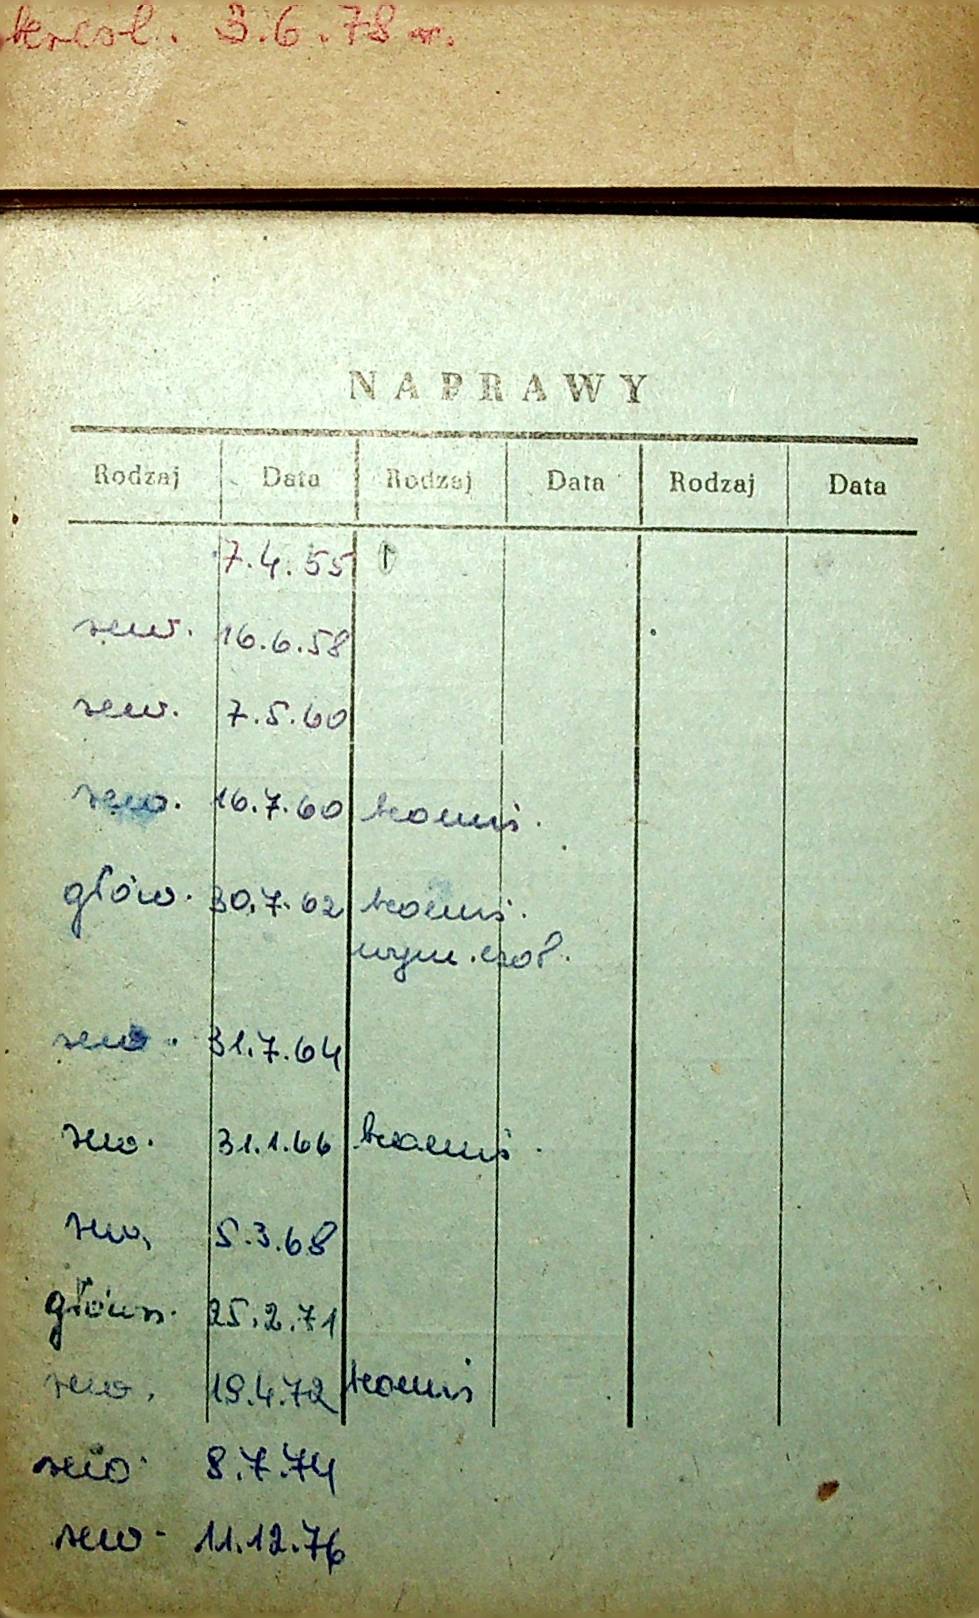 skreśl. 3.6.78 r.
NAPRAWY
Rodzaj Data Rodzaj Data Rodzaj Data
7.4.55
rew. 16.6.58
rew. 7.5.60
rew. 16.7.60 komis.
głów. 30.7.62 komis.
wym. czoł.
rew. 31.7.64
rew. 31.1.66 komis.
rew. 5.3.68
główn. 25.2.71
rew. 19.4.72 komis
rew. 8.7.74
rew. 11.12.76